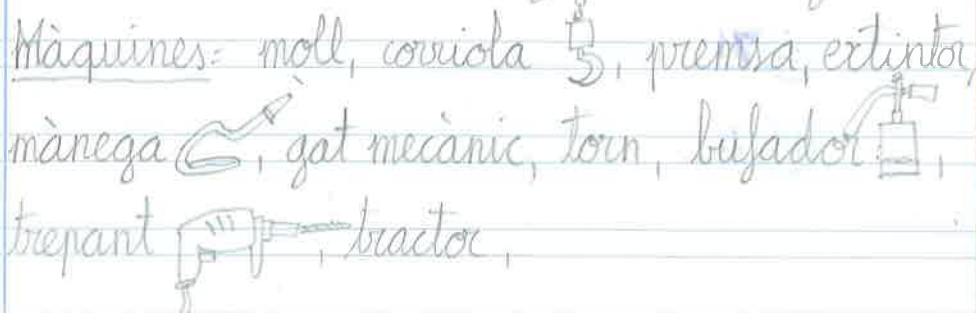 Màquines: moll, corriola, premsa, extintor,
mànega, gat mecànic, torn, bufador,
trepant, tractor,